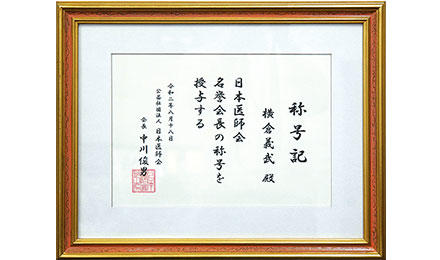 称号記
横倉義武 殿
日本医師会
名誉会長の称号を
授与する
令和二年八月十八日
公益社団法人 日本医師会
会長 中川俊男